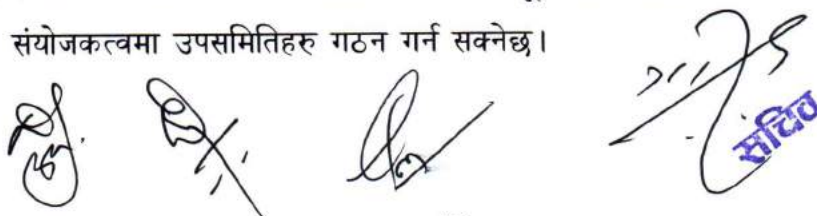 संयोजकत्वमा उपसमितिहरु गठन गर्न सक्नेछ।
सचिव